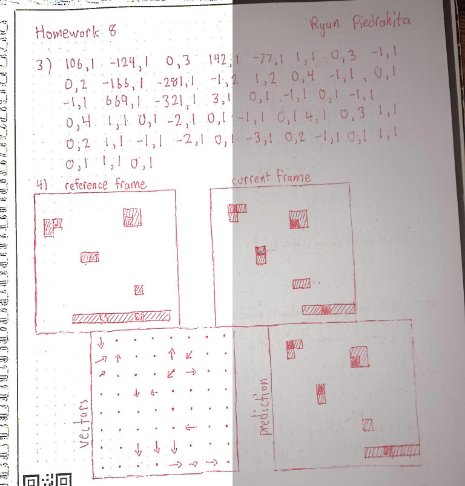 Homework 8
Ryan Piedrahita
3) 106,1 -124,1 0,3 142,1 -77,1 1,1 0,3 -1,1
0,2 -166,1 -281,1 -1,2 1,2 0,4 -1,1 0,1
-1,1 669,1 -321,1 3,1 0,1 -1,1 0,1 -1,1
0,4 1,1 0,1 -2,1 0,1 -1,1 0,1 4,1 0,3 1,1
0,2 1,1 -1,1 -2,1 0,1 -3,1 0,2 -1,1 0,1 1,1
0,1 1,1 0,1
4) reference frame
current frame
vectors
prediction